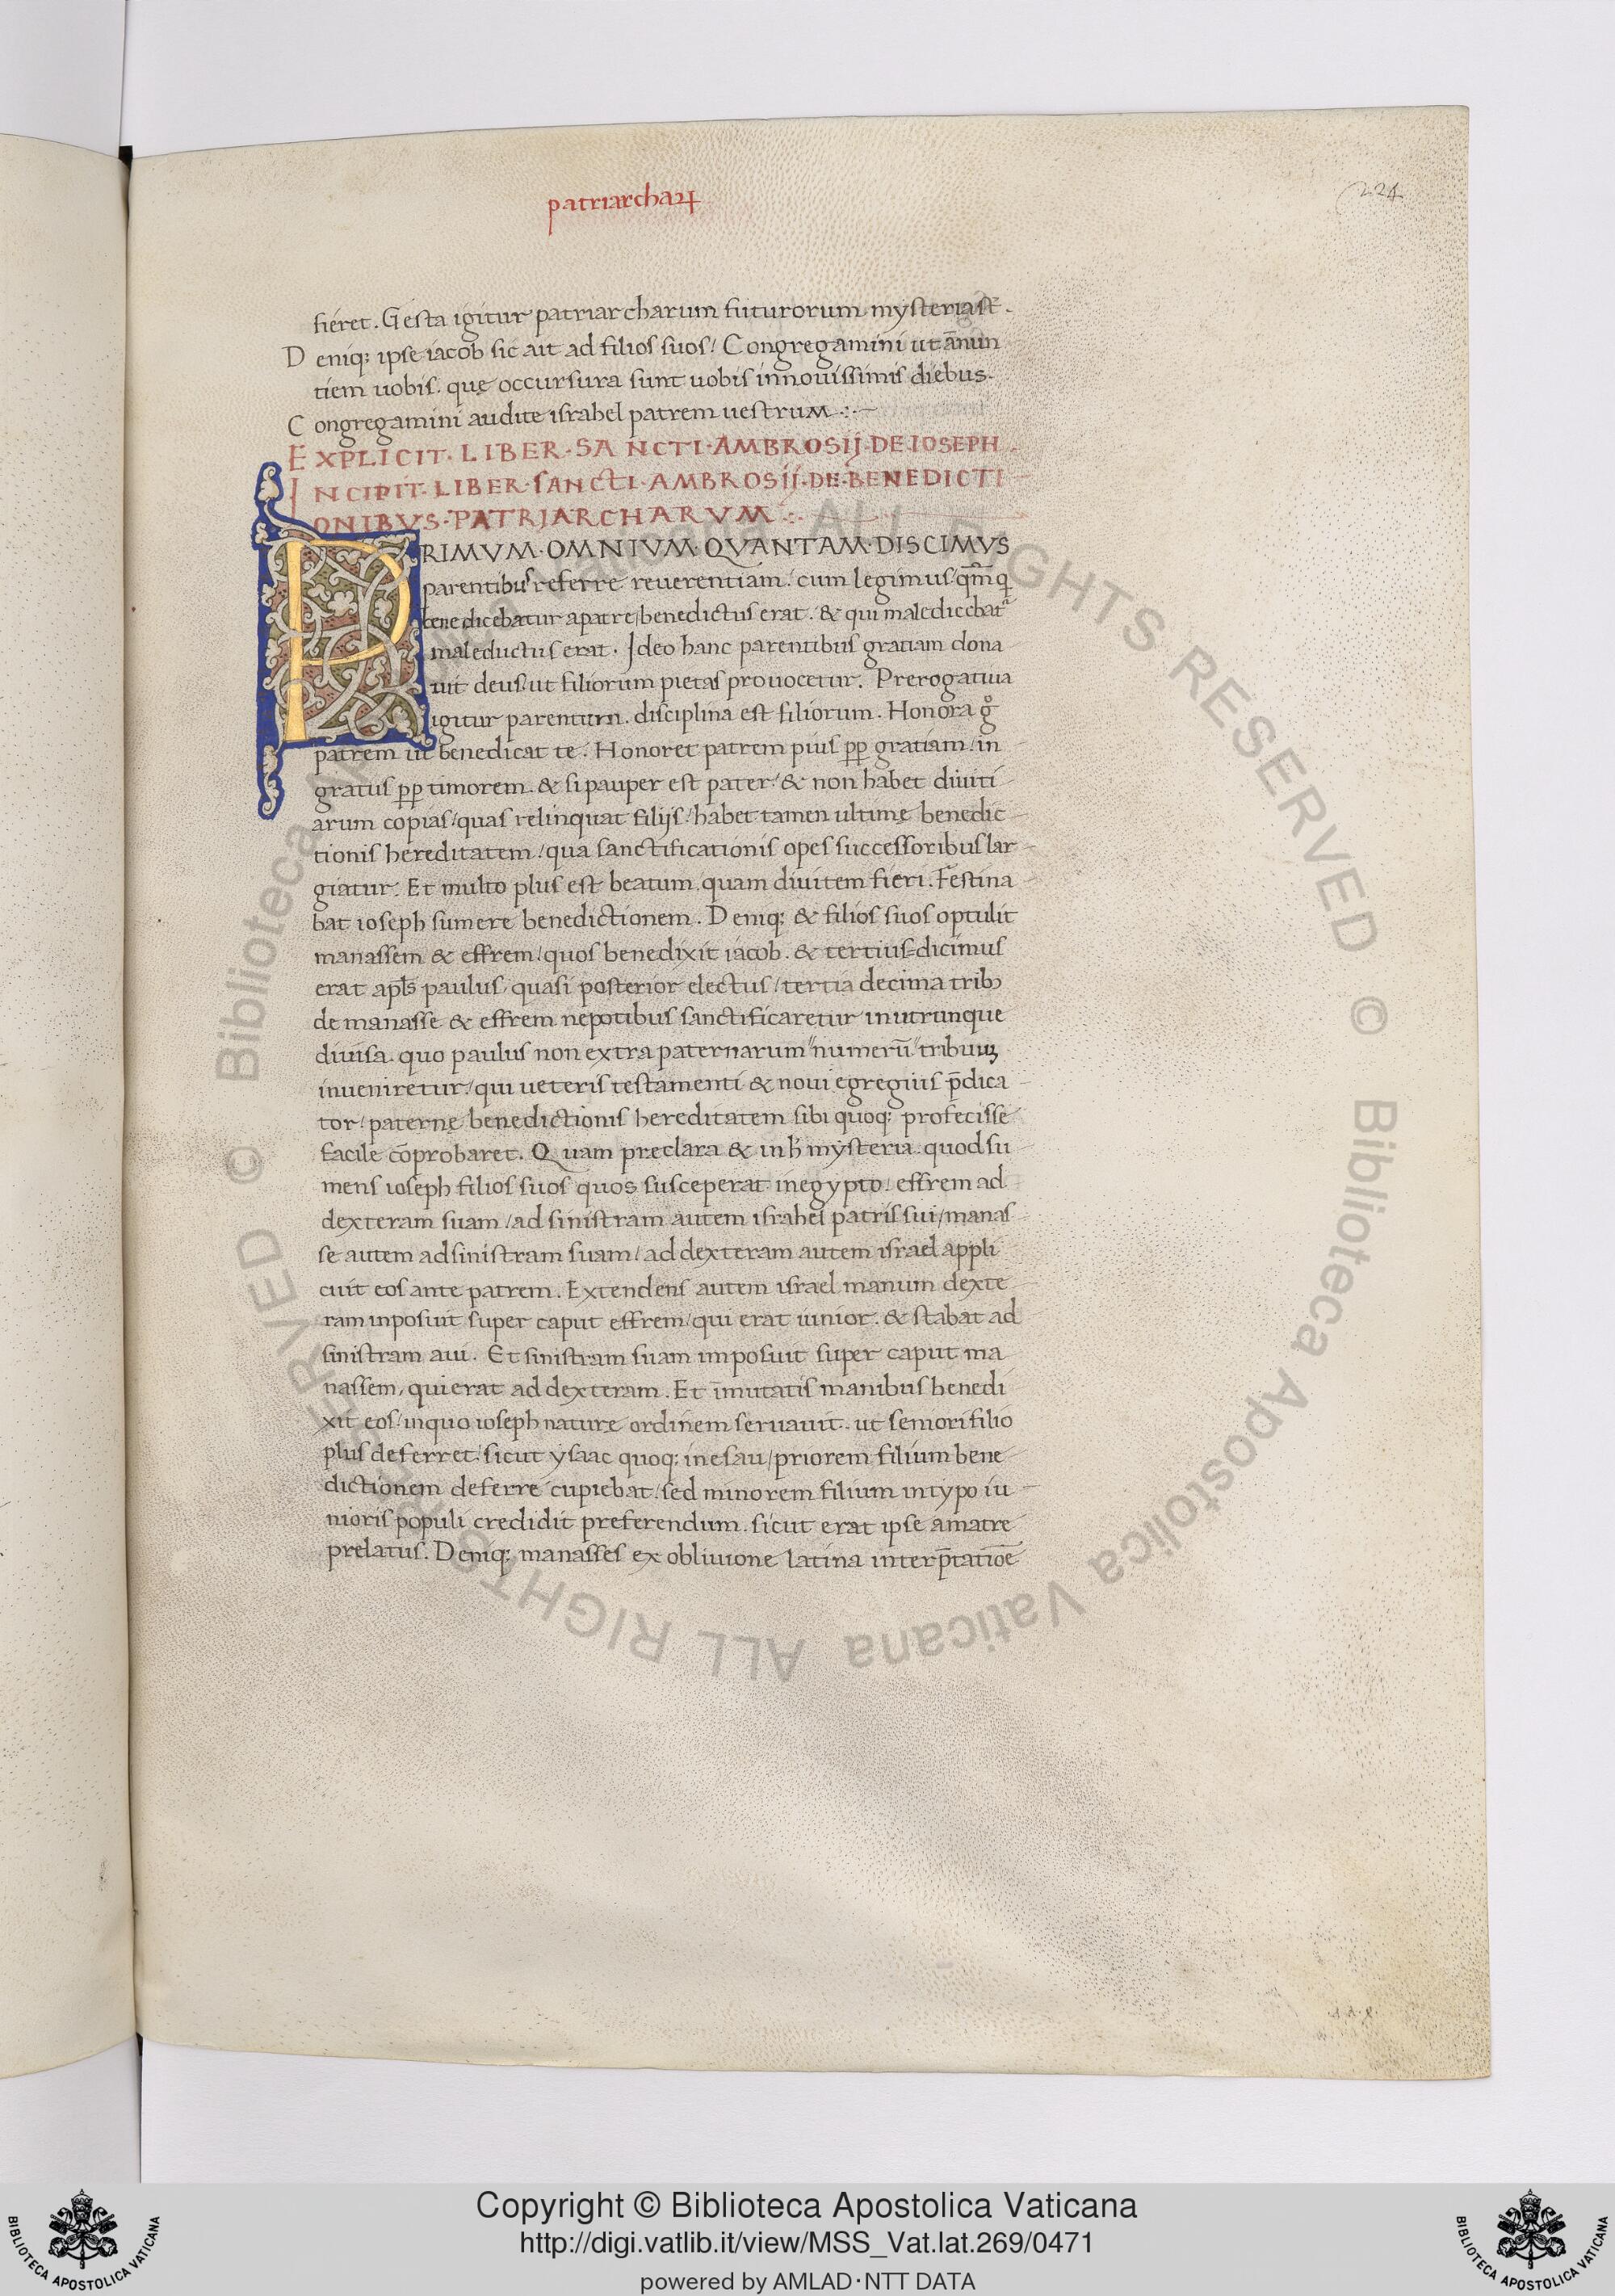 patriarchaꝝ
224
fieret. Gesta igitur patriarcharum futurorum mysteria st̄.
Deniq; ipse iacob sic ait ad filios suos / Congregamini ut ān̄un
tiem uobis. quę occursura sunt uobis innouissimis diebus.
Congregamini audite israhel patrem uestrum :.
EXPLICIT. LIBER. SANCTI. AMBROSIJ. DE. IOSEPH
INCIPIT. LIBER. SANCTI. AMBROSIJ. DE. BENEDICTI
ONIBVS. PATRIARCHARVM :.
PRIMVM. OMNIVM. QVANTAM. DISCIMVS
parentibus referre reuerentiam / cum legimus / qm̄ q
benedicebatur apatre / benedictus erat. & qui maledicebat
maleductus erat. Ideo hanc parentibus gratiam dona
uit deus / ut filiorum pietas prouocetur. Prerogatiua
igitur parentum. disciplina est filiorum. Honora gͦ
patrem ut benedicat te. Honoret patrem pius ꝓp gratiam / in
gratus ꝓp timorem. & si pauper est pater / & non habet diuiti
arum copias / quas relinquat filijs / habet tamen ultimę benedic
tionis hereditatem / qua sanctificationis opes successoribus lar
giatur. Et multo plus est beatum quam diuitem fieri. Festina
bat ioseph sumere benedictionem. Deniq; & filios suos optulit
manassem & effrem / quos benedixit iacob. & tertius=dicimus
erat apl̄s paulus / quasi posterior electus / tertia decima trib;
de manasse & effrem nepotibus sanctificaretur inutrunque
diuisa. quo paulus non extra paternarum "numerū" tribuum
inueniretur / qui ueteris testamenti & noui egregius p̄dica
tor / paternę benedictionis hereditatem sibi quoq; profecisse
facile cōprobaret. Quam preclara & inh mysteria. quod su
mens ioseph filios suos quos susceperat inegypto / effrem ad
dexteram suam / ad sinistram autem israhel patris sui / manas
se autem adsinistram suam / ad dexteram autem israel appli
cuit eos ante patrem. Extendens autem israel manum dexte
ram inposuit super caput effrem / qui erat iunior. & stabat ad
sinistram aui. Et sinistram suam imposuit super caput ma
nassem, qui erat ad dexteram. Et īmutatis manibus benedi
xit eos / inquo ioseph naturę ordinem seruauit. ut seniori filio
plus deferret / sicut ysaac quoq; inesau / priorem filium bene
dictionem deferre cupiebat / sed minorem filium intypo iu
nioris populi credidit preferendum. sicut erat ipse amatre
prelatus. Deniq; manasses ex obliuione latina interp̄tatiōe
© Biblioteca Apostolica Vaticana ALL RIGHTS RESERVED © Biblioteca Apostolica Vaticana ALL RIGHTS RESERVED
Copyright © Biblioteca Apostolica Vaticana
http://digi.vatlib.it/view/MSS_Vat.lat.269/0471
powered by AMLAD·NTT DATA
BIBLIOTECA APOSTOLICA VATICANA
BIBLIOTECA APOSTOLICA VATICANA